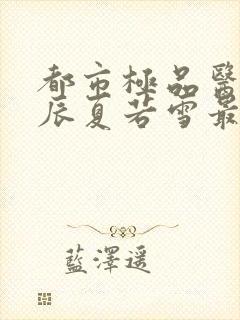 都市極品醫
辰夏若雪最
藍澤遥